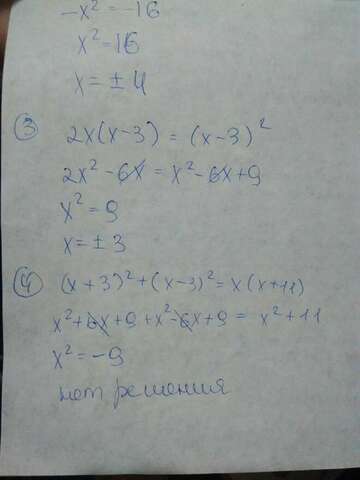 -x² = -16
x² = 16
x = ± 4
③
2x(x-3) = (x-3)²
2x² - 6x = x² - 6x + 9
x² = 9
x = ± 3
④ (x+3)² + (x-3)² = x(x+11)
x² + 6x + 9 + x² - 6x + 9 = x² + 11
x² = -9
нет решения